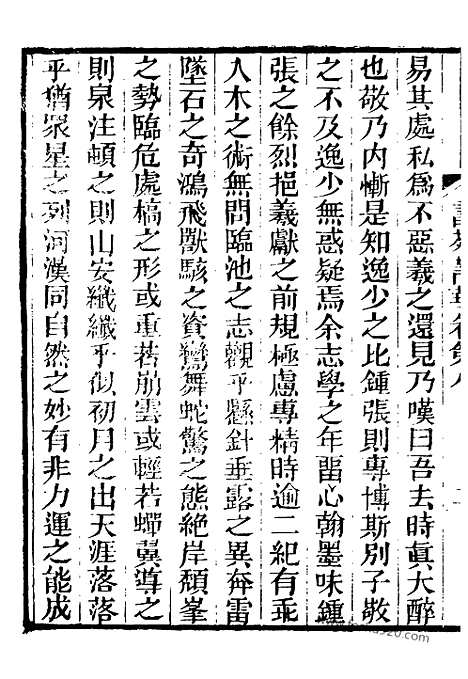 易其處私為不惡羲之還見乃嘆曰吾去時真大醉
也敬乃内慚是知逸少之比鍾張則專博斯別子敬
之不及逸少無惑疑焉余志學之年畱心翰墨味鍾
張之餘烈挹羲獻之前規極慮專精時逾二紀有乖
入木之術無間臨池之志觀乎懸針垂露之異奔雷
墜石之奇鴻飛獸駭之資鸞舞蛇驚之態絶岸頽峯
之勢臨危處槁之形或重若崩雲或輕若蟬翼導之
則泉注頓之則山安纖纖乎似初月之出天涯落落
乎猶眾星之列河漢同自然之妙有非力運之能成